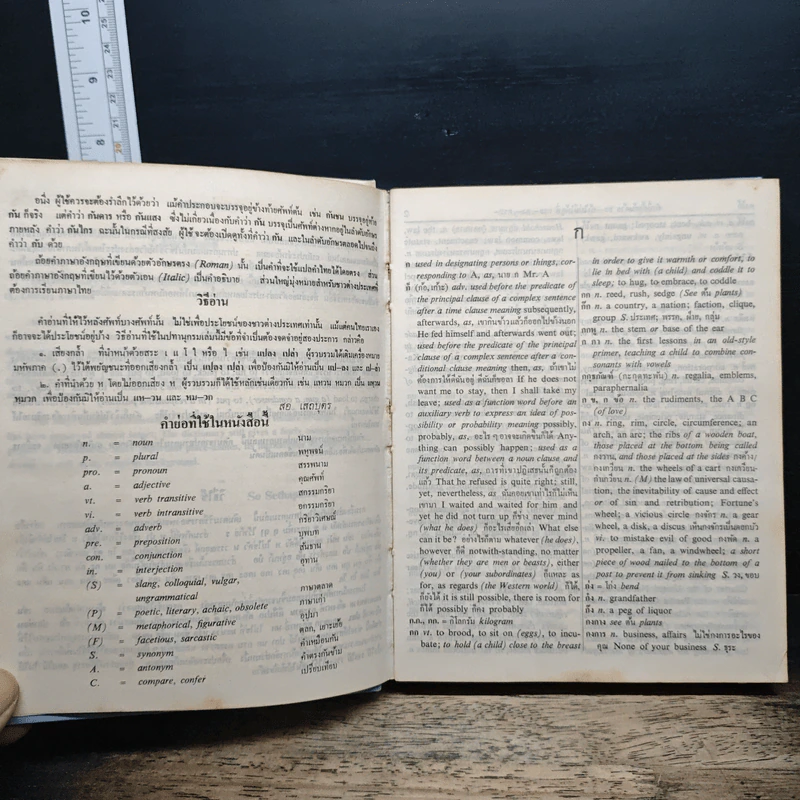 อนึ่ง ผู้ใช้ควรจะต้องรำลึกไว้ด้วยว่า แม้คำประกอบจะบรรจุอยู่ข้างท้ายศัพท์ต้น เช่น กันชน บรรจุอยู่ท้าย
กัน ก็จริง แต่คำว่า กันดาร หรือ กันแสง ซึ่งไม่เกี่ยวเนื่องกับคำว่า กัน บรรจุเป็นศัพท์ต่างหากอยู่ในลำดับอักษร
ภายหลัง คำว่า กันไกร ฉะนั้นในกรณีที่สงสัย ผู้ใช้ จะต้องเปิดดูทั้งที่คำว่า กัน และในลำดับอักษรตลอดไปจนถึง
คำว่า กับ ด้วย
ถ้อยคำภาษาอังกฤษที่เขียนด้วยตัวอักษรตรง (Roman) นั้น เป็นคำที่จะใช้แปลคำไทยได้โดยตรง ส่วน
ถ้อยคำภาษาอังกฤษที่เขียนไว้ด้วยตัวเอน (Italic) เป็นคำอธิบาย ส่วนใหญ่มุ่งหมายสำหรับชาวต่างประเทศที่
ต้องการเรียนภาษาไทย
วิธีอ่าน
คำอ่านที่ให้ไว้หลังศัพท์บางศัพท์นั้น ไม่ใช่เพื่อประโยชน์ของชาวต่างประเทศเท่านั้น แม้แต่คนไทยเราเอง
ก็อาจจะได้ประโยชน์อยู่บ้าง วิธีอ่านที่ใช้ในปทานุกรมเล่มนี้มีข้อที่จำเป็นต้องจดจำอยู่สองประการ กล่าวคือ
๑. เสียงกล้ำ ที่นำหน้าด้วยสระ เ แ โ ใ หรือ ไ เช่น แปลง เปล่า ผู้รวบรวมได้เติมเครื่องหมาย
มหัพภาค (.) ไว้ใต้พยัญชนะที่ออกเสียงกล้ำ เป็น แปลง เปล่า เพื่อป้องกันมิให้อ่านเป็น แป-ลง และ เป-ล่า
๒. คำที่นำด้วย ห โดยไม่ออกเสียง ห ผู้รวบรวมก็ได้ใช้หลักเช่นเดียวกัน เช่น แหวน หมวก เป็น แหวน
หมวก เพื่อป้องกันมิให้อ่านเป็น แห-วน และ หม-วก
สอ เสถบุตร
คำย่อที่ใช้ในหนังสือนี้
n. = noun นาม
p. = plural พหูพจน์
pro. = pronoun สรรพนาม
a. = adjective คุณศัพท์
vt. = verb transitive สกรรมกริยา
vi. = verb intransitive อกรรมกริยา
adv. = adverb กริยาวิเศษณ์
pre. = preposition บุพบท
con. = conjunction สันธาน
in. = interjection อุทาน
(S) = slang, colloquial, vulgar,
ungrammatical ภาษาตลาด
(P) = poetic, literary, achaic, obsolete ภาษาเก่า
(M) = metaphorical, figurative อุปมา
(F) = facetious, sarcastic ตลก, เยาะเย้ย
S. = synonym คำเหมือนกัน
A. = antonym คำตรงกันข้าม
C. = compare, confer เปรียบเทียบ
ก
ก used in designating persons or things, cor-
responding to A, as, นาย ก Mr. A
ก็ (ก้อ, เก้าะ) adv. used before the predicate of
the principal clause of a complex sentence
after a time clause meaning subsequently,
afterwards, as, เขากินข้าวแล้วก็ออกไปข้างนอก
He fed himself and afterwards went out;
used before the predicate of the principal
clause of a complex sentence after a con-
ditional clause meaning then, as, ถ้าเขาไม่
ต้องการให้ดิฉันอยู่ ดิฉันก็ขอลา If he does not
want me to stay, then I shall take my
leave; used as a function word before an
auxiliary verb to express an idea of pos-
sibility or probability meaning possibly,
probably, as, อะไร ๆ อาจจะเกิดขึ้นก็ได้ Any-
thing can possibly happen; used as a
function word between a noun clause and
its predicate, as, การที่เขาปฏิเสธนั้นก็ถูกต้อง
แล้ว That he refused is quite right; still,
yet, nevertheless, as, ฉันคอยเขาเท่าไรก็ไม่เห็น
เขามา I waited and waited for him and
yet he did not turn up ก็ช่าง never mind
(what he does) ก็อะไรเสียอีกเล่า What else
can it be? อย่างไรก็ตาม whatever (he does),
however ก็ดี notwith-standing, no matter
(whether they are men or beasts), either
(you) or (your subordinates) ก็แหละ as
for, as regards (the Western world) ก็ได้,
ก็ยังได้ it is still possible, there is room for
ก็ได้ possibly ก็คง probably
ก.ก., กก. = กิโลกรัม kilogram
กก vt. to brood, to sit on (eggs), to incu-
bate; to hold (a child) close to the breast
in order to give it warmth or comfort, to
lie in bed with (a child) and coddle it to
sleep; to hug, to embrace, to coddle
กก n. reed, rush, sedge (See ต้น plants)
ก๊ก n. a country, a nation; faction, clique,
group S. ประเทศ; พรรค, ฝ่าย, กลุ่ม
กกหู n. the stem or base of the ear
ก กา n. the first lessons in an old-style
primer, teaching a child to combine con-
sonants with vowels
กกุธภัณฑ์ (กะกุดทะพัน) n. regalia, emblems,
paraphernalia
ก ข, ก ข้อ n. the rudiments, the A B C
(of love)
กง n. ring, rim, circle, circumference; an
arch, an arc; the ribs of a wooden boat,
those placed at the bottom being called
กงวาน, and those placed at the sides กงค้าง;
กงเกวียน n. the wheels of a cart กงเกวียน-
กำเกวียน n. (M) the law of universal causa-
tion, the inevitability of cause and effect
or of sin and retribution; Fortune's
wheel; a vicious circle กงจักร n. a gear
wheel, a disk, a discus เห็นกงจักรเป็นดอกบัว
vi. to mistake evil of good กงพัด n. a
propeller, a fan, a windwheel; a short
piece of wood nailed to the bottom of a
post to prevent it from sinking S. วง, ขอบ
ก่ง = โก่ง bend
ก๋ง n. grandfather
กั๋ง n. a peg of liquor
กงกาง see ต้น plants
กงการ n. business, affairs ไม่ใช่กงการอะไรของ
คุณ None of your business S. ธุระ